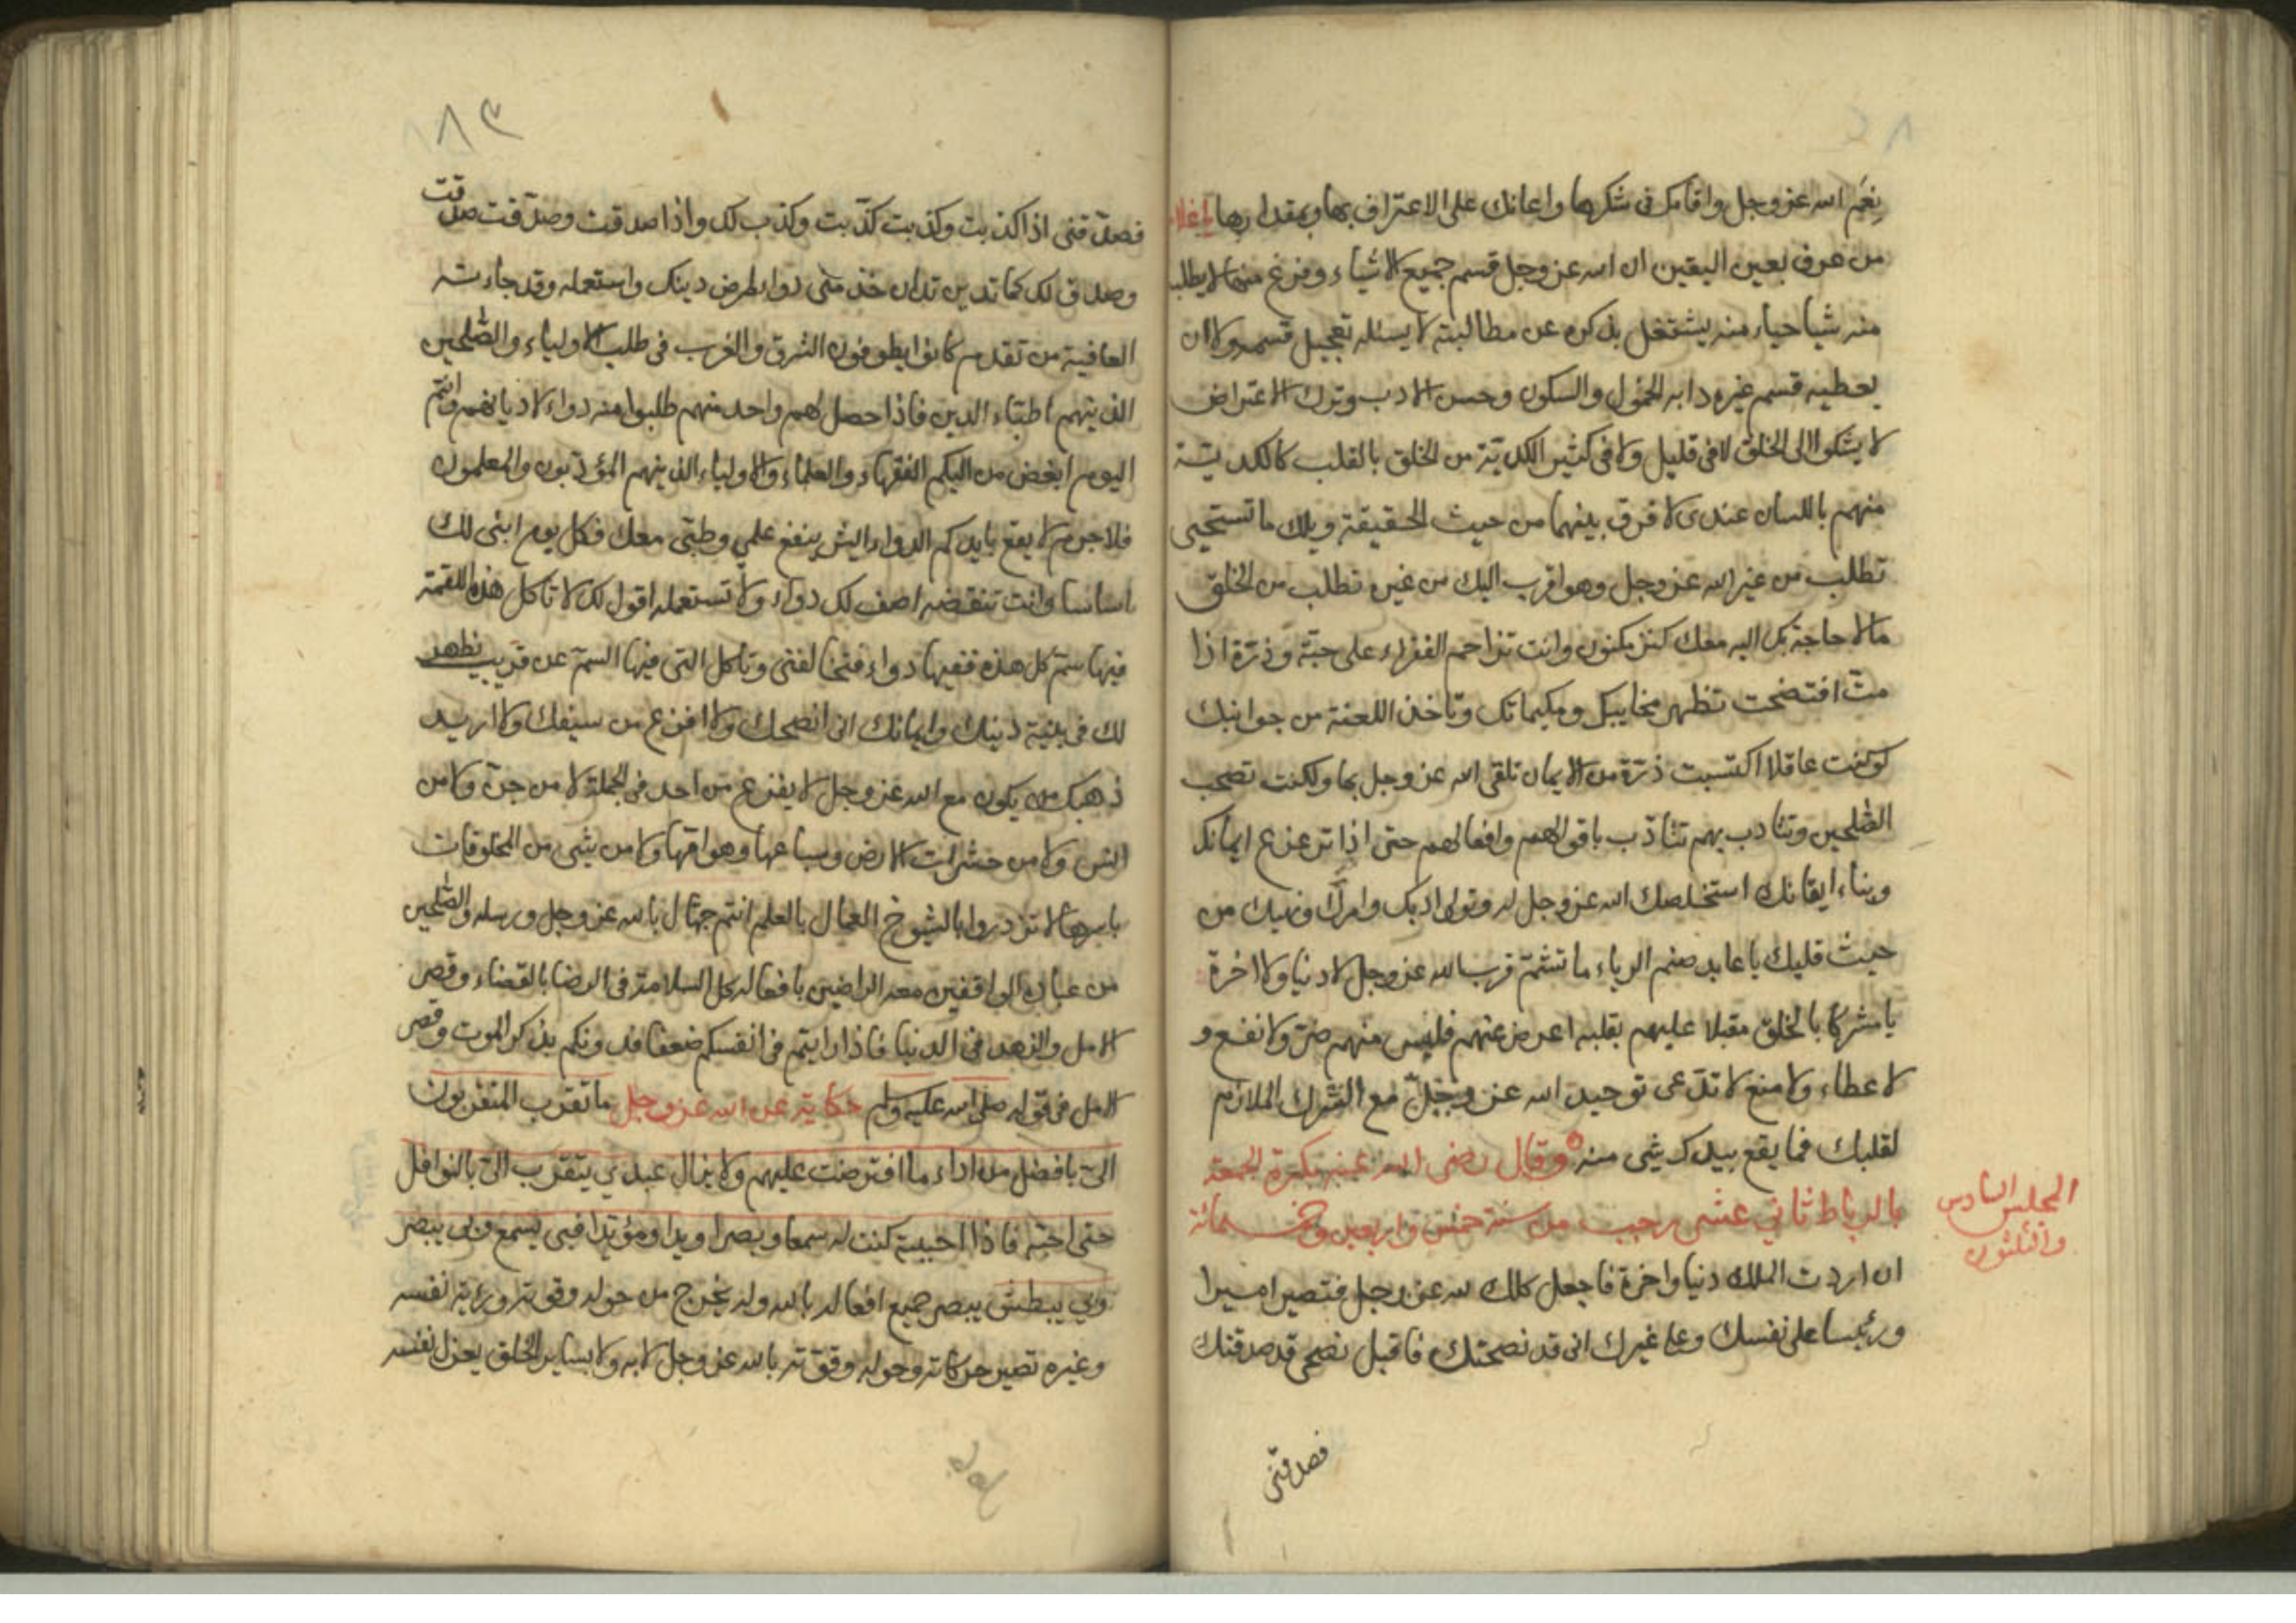 نِعَم الله عز وجل واقامك فى شكرها واعانك على الاعتراف بها وبمقدارها يا غلام
من عرف بعين اليقين ان الله عز وجل قسم جميع الاشياء وفرغ منها لا يطلب
منه شيا حياء منه يشتغل بذكره عن مطالبته لا يسئله تعجيل قسمه ولا ان
يعطيه قسم غيره دابه الخمول والسكون وحسن الادب وترك الاعتراض
لا يشكوا الى الخلق لا فى قليل ولا فى كثير الكدية من الخلق بالقلب كالكدية
منهم باللسان عندى لا فرق بينهما من حيث الحقيقة ويلك ما تستحيى
تطلب من غير الله عز وجل وهو اقرب اليك من غيره تطلب من الخلق
ما لا حاجة بك اليه معك كنز مكنون وانت تزاحم الفقراء على حبّة وذرّة اذا
متّ افتضحت تظهر مخابيك ومكيماتك وتاخذ اللعنة من جوانبك
لو كنت عاقلا اكتسبت ذرّة من الايمان تلقى الله عز وجل بها ولكنت تصحب
الصّلحين وتتادب بهم تتادّب باقوالهم وافعالهم حتى اذا ترعرع ايمانك
وبناء ايقانك استخلصك الله عز وجل له وتولى ادبك وامرك ونهيك من
حيث قلبك يا عابد صنم الرياء ما تشمّ قرب الله عز وجل لا دنيا ولا اخرة
يا مشركا بالخلق مقبلا عليهم بقلبه اعرض عنهم فليس منهم ضرّ ولا نفع و
لا عطاء ولا منع لا تدّعى توحيد الله عز وجلّ مع الشرك الملازم
لقلبك فما يقع بيدك شى منه وقال رضى الله عنه بكرة الجمعة
بالرباط ثانى عشر رجب من سنة خمس واربعين وخمسمائة
المجلس السادس
والثلثون
ان اردت الملك دنيا واخرة فاجعل كلك لله عز وجل فتصير اميرا
ورئيسا على نفسك وعلى غيرك انى قد نصحتك فاقبل نصحى قد صدقتك
فصدقنى
١٨٣
فصدّقنى اذا كذبت وكذبت كذّبت وكذب لك واذا صدقت وصدّقت صدقت
وصدق لك كما تدين تدان خذ منّى دواء لمرض دينك واستعمله وقد جاءته
العافية من تقدم كانوا يطوفون الشرق والغرب فى طلب الاولياء والصّلحين
الذينهم اطبّاء الدين فاذا حصل لهم واحد منهم طلبوا منه دواء لاديانهم وانتم
اليوم ابغض من اليكم الفقهاء والعلماء والاولياء الذينهم المؤدّبون والمعلمون
فلا جرم لا يقع بايديكم الدواء ايش ينفع علمى وطبّى معك فكل يوم ابنى لك
اساسا وانت تنقضه اصف لك دواء ولا تستعمله اقول لك لا تاكل هذه اللقمة
فيها سمّ كل هذه ففيها دواء فتخالفنى وتاكل التى فيها السمّ عن قريب يظهر
لك فى بنية دينك وايمانك انى انصحك ولا افزع من سيفك ولا اريد
ذهبك من يكون مع الله عز وجل لا يفزع من احد فى الجملة لا من جنّ ولا من
انس ولا من حشرات الارض وسباعها وهوامّها ولا من شى من المخلوقات
باسرها لا تزدروا بالشيوخ العمال بالعلم انتم جهّال بالله عز وجل ورسله والصّلحين
من عباده الواقفين معه الراضين بافعاله كل السلامة فى الرضا بالقضاء وقصر
الامل والزهد فى الدنيا فاذا رايتم فى انفسكم ضعفا فدونكم بذكر الموت وقصر
الامل فى قوله صلى الله عليه وسلم حكاية عن الله عز وجل ما تقرب المتقربون
الىّ بافضل من اداء ما افترضت عليهم ولا يزال عبدى يتقرب الىّ بالنوافل
حتى احبّه فاذا احببته كنت له سمعا وبصرا ويدا ومؤيّدا فبى يسمع وبى يبصر
وبى يبطش يبصر جميع افعاله بالله وله يخرج من حوله وقوته ورؤية نفسه
وغيره تصير حركاته وحوله وقوّته بالله عز وجل لا به ولا بساير الخلق يعزل نفسه